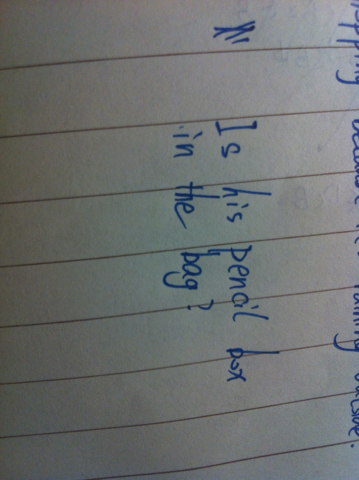 because it's raining outside.
Is his pencil box
in the bag?